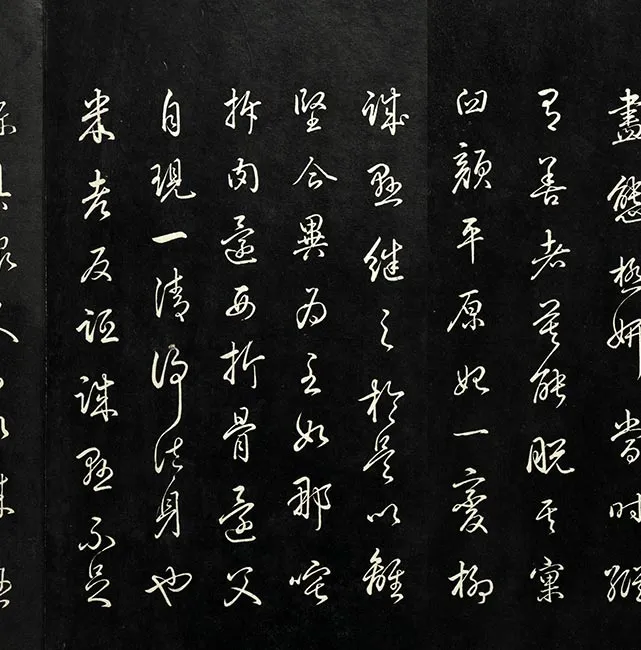 盡態極妍當時雖
有善者莫能脫其窠
臼顏平原始一變柳
誠懸繼之於是以離
堅合異為主如那吒
拆肉還母折骨還父
自現一清淨法身也
米老反詆誠懸不足